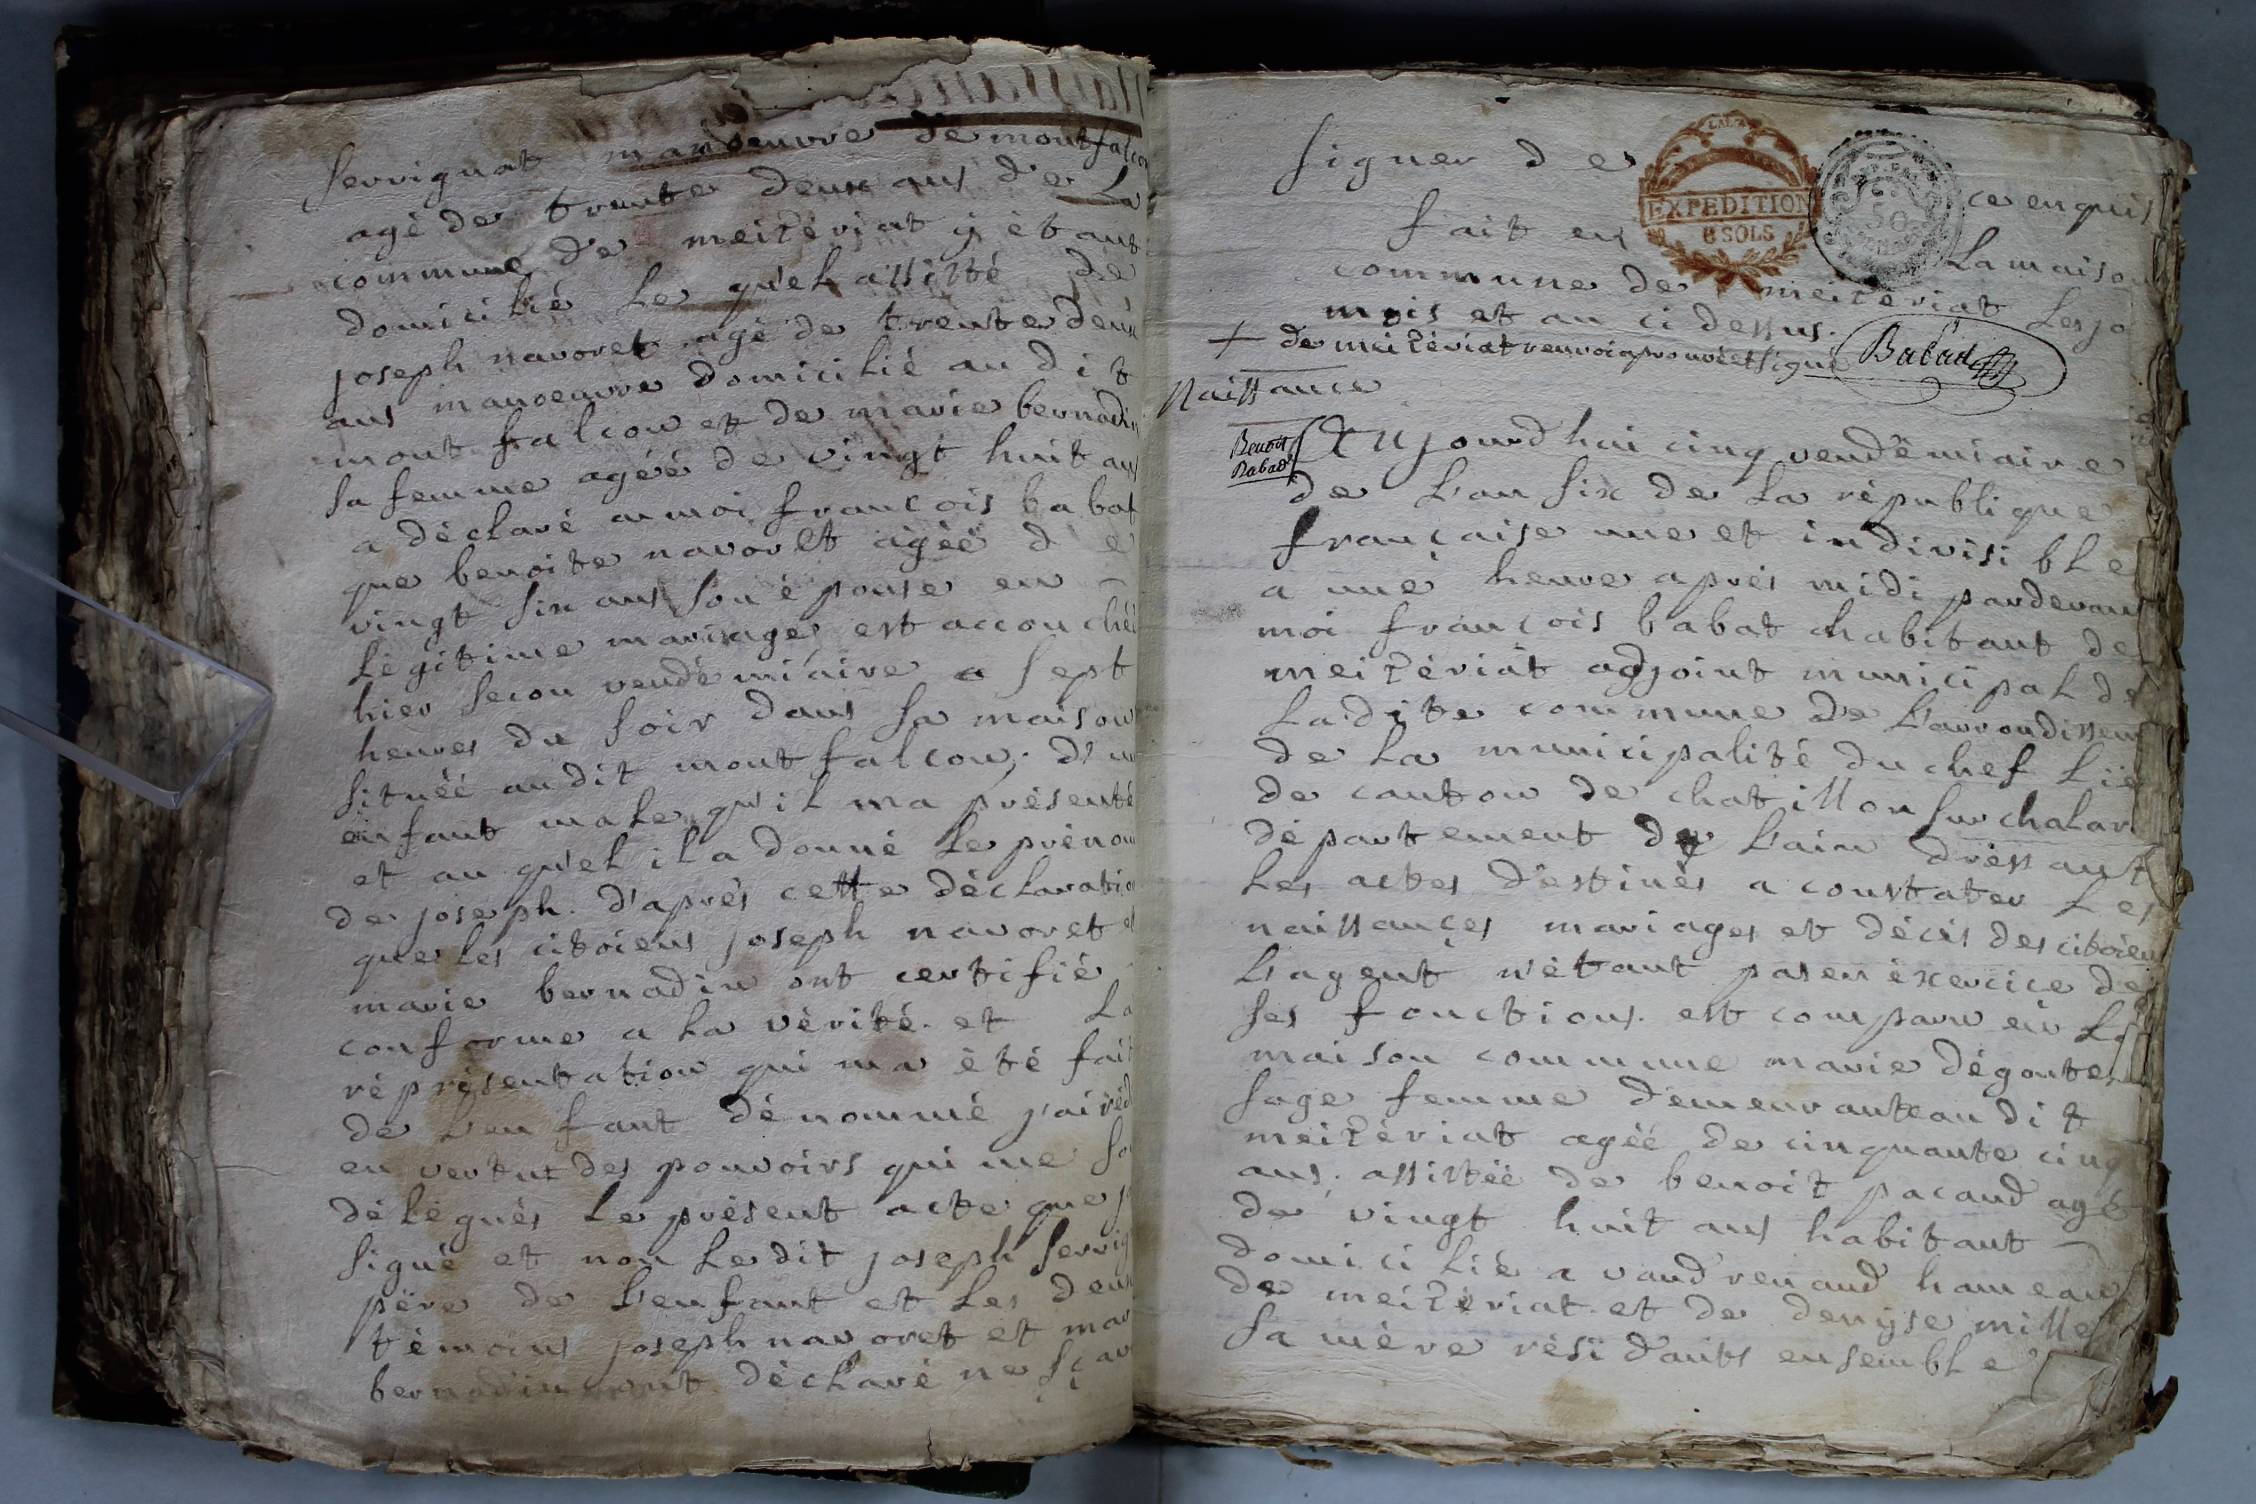 Servignat manoeuvre de montfalcon
agé de trente deux ans de La
commune de meizériat y étant
domicilié Le quel assisté de
joseph navoret agé de trente deux
ans manoeuvre domicilié au dit
mont falcon et de marie bernadin
sa femme agéé de vingt huit ans
a déclaré a moi françois babat
que benoite navoret agéé de
vingt six ans son épouse en
Légitime mariage est accouchéé
hier secon vendémiaire a sept
heures du soir dans sa maison
situéé audit mont falcon, d'un
enfant male qu'il ma présenté
et au quel il a donné Le prénom
de joseph. d'aprés cette déclaration
que Les citoiens joseph navoret et
marie bernadin ont certifié
conforme a La vérité. et La
réprésentation qui ma été fait
de L'enfant dénommé j'ai réd
en vertut des pouvoirs qui me so
délégués Le présent acte que j
signé et non Ledit joseph servig
pére de L'enfant et Les deux
témoins joseph navoret et mar
bernadin ont déclaré ne sçav
signer de ce enquis
EXPEDITION
8 SOLS
50
fait en La maison
commune de meizériat Les jo
mois et an ci dessus.
+ de meizériat renvoi aprouvé et signé Babad
Naissance
Benoit
Babad
Aujourd hui cinq vendémiaire
de L'an six de La république
française une et indivisible
a une heure aprés midi pardevant
moi françois babat habitant de
meizériat adjoint municipal de
La dite commune de L'arrondissem
de La municipalité du chef Lie
de canton de chatillon sur chalar
département de L'ain dressant
Les actes destinés a constater Les
naissances mariages et décés des citoien
L'agent n'étant pas en éxercice de
ses fonctions. est comparu en La
maison commune marie dégoutte
sage femme demeurante au dit
meizériat agéé de cinquante cinq
ans. assistéé de benoit pacaud agé
de vingt huit ans habitant
domicilié a vaud renaud hameau
de meizériat. et de denyse mille
sa mére résidants ensemble